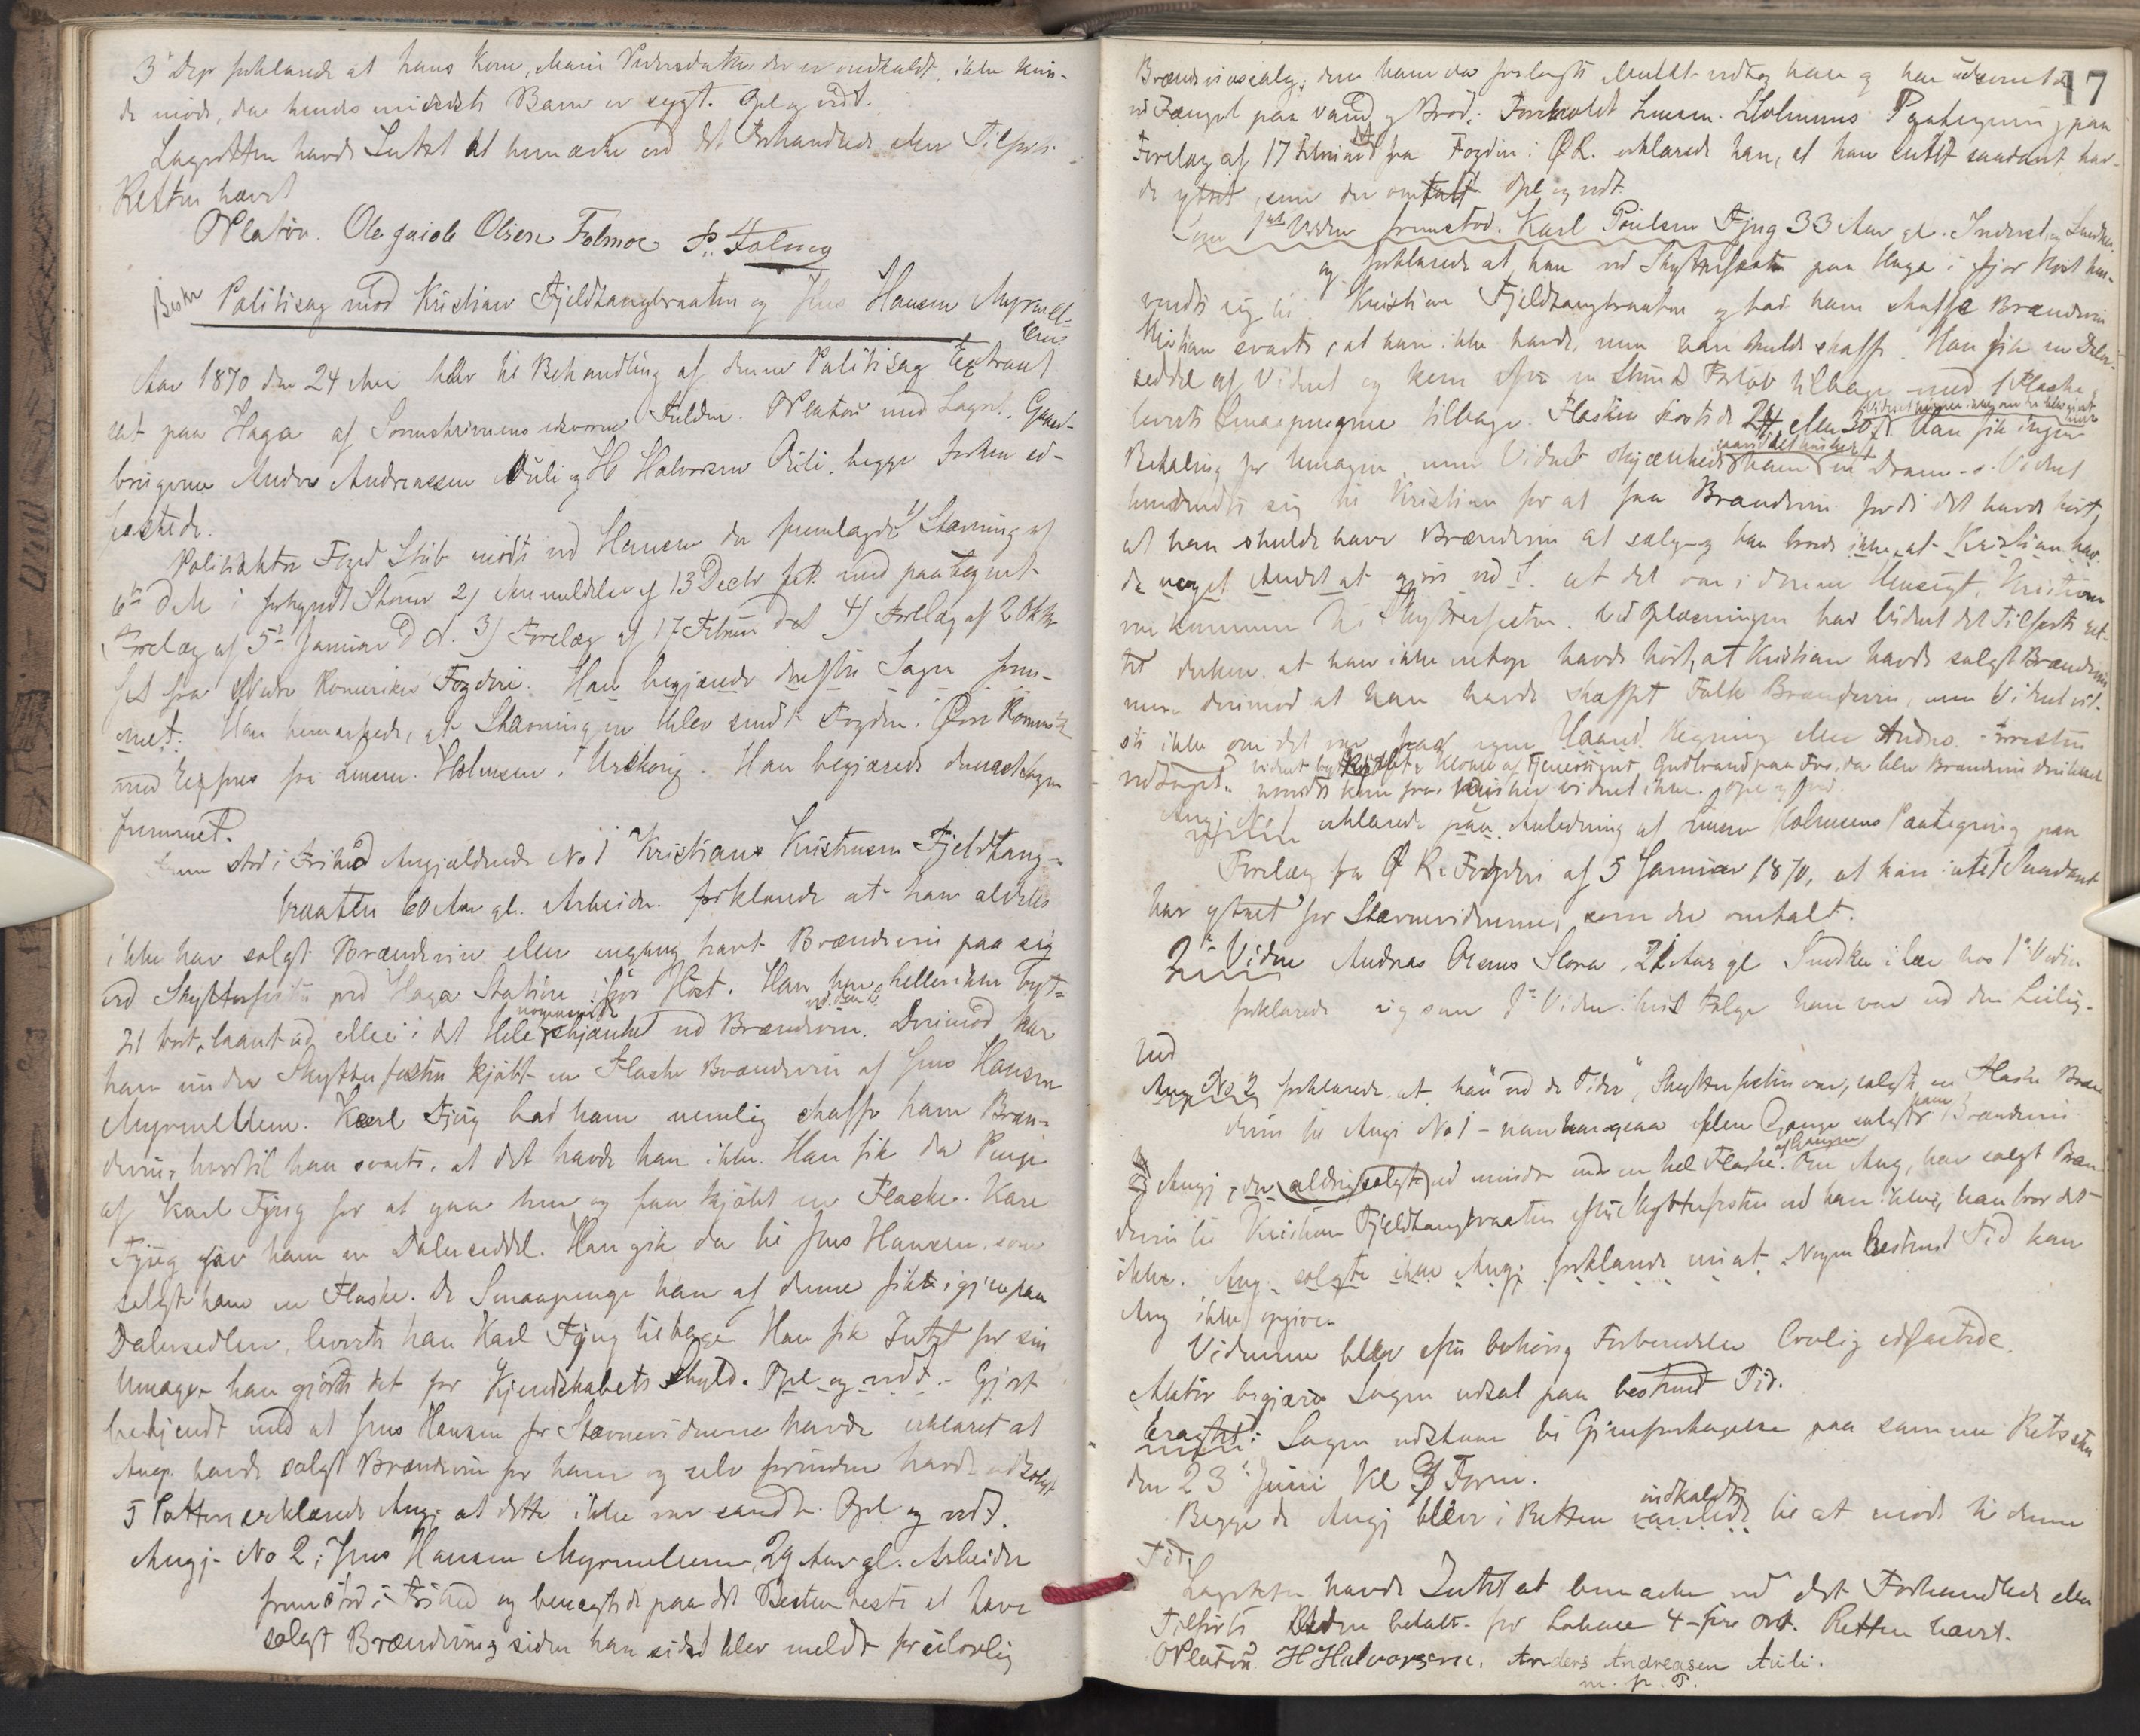 3' Dep forklarede at hans Kone, Marie Pedersdatter der er indkaldt, ikke kun-
de møde, da hendes mindste Barn er sygt. Opl og vedt.
Lagretten havde Intet at bemærke ved det Forhandlede eller Tilførte.
Retten hævet
OPlatou. Ole Jacob Olsen Folmoe P. Folmoe
Politisag mod Kristian Fjeldtangbraaten og Jens Hansen Myrmell-
lem.
Aar 1870 den 24 Mai blev til Behandling af denne Politisag Extraret
sat paa Haga af Sorenskriverens edsvorne Fuldm. OPlatou med Lagret. Gaard-
brugerne Anders Andreassen Auli og H Halvorsen Auli, begge forhen ed-
fæstede.
Politiaktor Foged Stub mødte ved Hansen der fremlagde 1) Stævning af
6te d M i forkyndt Stand 2) Anmeldelse af 13 Decbr f.A. med paategnet
Forelæg af 5te Januar d A. 3) Forelæg af 17 Februar d A 4) Forelæg af 2 Oktbr
f A fra Nedre Romerikes Fogderi. Han begjærede derefter Sagen frem-
met. Han bemærkede, at Stævningen blev sendt Fogden i Øvre Romerike
med Express fra Lensm. Holmsen i Urskoug. Han begjærede dernæst Sagen
fremmet.
Frem stod i Frihed Angjældende No 1 Kristian Kristensen Fjeldtang-
braaten 60 Aar gl. Arbeider. forklarede at han aldeles
ikke har solgt Brændeviin eller engang havt Brændeviin paa sig
ved Skytterfesten ved Haga Station ifjor Høst. Han har hellerikke byt-
tet bort, laant ud eller i det Hele nogensinde skjænket ud Brændeviin. Derimod har
han under Skytterfesten kjøbt en Flaske Brændeviin af Jens Hansen
Myrmellem. Karl Fjug bad ham nemlig skaffe ham Bræn-
deviin, hvortil han svarte, at det havde han ikke. Han fik da Penge
af Karl Fjug for at gaa hen og faa kjøbt en Flaske. Karl
Fjug gav ham en Dalerseddel. Han gik da til Jens Hansen, som
solgte ham en Flaske. De Smaapenge han af denne fik igjen paa
Dalersedlen, leverte han Karl Fjug tilbage. Han fik Intet for sin
Umage. han gjorde det for Kjendskabets Skyld. Opl og vedt. Gjort
bekjendt med at Jens Hansen for Stævnevidnerne havde erklæret at
Angj. havde solgt Brændeviin for ham og selv forinden havde udsolgt
5 Potter erklærede Angj. at dette ikke var sandt. Opl og vedt.
Angj. No 2, Jens Hansen Myrmellem, 29 Aar gl. Arbeider
fremstod i Frihed og benegtede paa det Bestemteste at have
solgt Brændeviin siden han sidst blev meldt for ulovlig
17
Brændeviinssalg; den ham da forelagte Mulkt vedtog han og har udsonet
ved Fængsel paa Vand og Brød. Foreholdt Lensm. Holmsens Paategning paa
Forelæg af 17 Februar fra Fogden i Ø.R. erklærede han, at han intet saadant hav-
de ytret, som der omtalt. Opl og vedt.
Som 1ste Vidne fremstod Karl Poulsen Fjug 33 Aar gl. Inderst, Snedker
og forklarede at han ved Skytterfesten paa Haga i fjor Høst hen-
vendte sig til Kristian Fjeldtangbraaten og bad ham skaffe Brændeviin
Kristian svarte, at han ikke havde, men han skulde skaffe. Han fik en Daler-
seddel af Vidnet og kom efter en Stunds Forløb tilbage med 1 Flaske
leverte Smaapengene tilbage. Flasken kostede 24 eller 30 ß. Han fik ingen
Betaling for Umagen, men Vidnet skjænkede ham en Dram. Vidnet
henvendte sig til Kristian for at faa Brændeviin fordi det havde hørt,
at han skulde have Brændeviin at sælge og han troede ikke, at Kristian hav-
de noget Andet at gjøre ved S. at det var i denne Hensigt, Kristian
var kommen til Skytterfesten. Ved Oplæsningen har Vidnet det Tilførte ret-
tet derhen, at han ikke netop havde hørt, at Kristian havde solgt Brændeviin
men derimod at han havde skaffet Folk Brændeviin, men Vidnet vid-
ste ikke om det var paa egen Haand, Regning eller Andres. Forresten
vedtaget.
Angj No 1 erklærede paa Anledning af Lensm Holmsens Paategning paa
Forelæg fra Ø R. Fogderi af 5 Januar 1870, at han intet Saadant
har ytret for Stævnevidnerne, som der omtalt.
2' Vidne Andreas Olsens Slora, 21 Aar gl Snedker i Lære hos 1' Vidne
forklarede sig som 1' Vidne i hvis Følge han var ved den Leilig-
hed
Angj No 2 forklarede, at han ved de Tider, Skytterfesten var, solgte en Flaske Bræn-
deviin til Angj No 1 – han har ogsaa flere Gange solgt ham Brændeviin
Angj, der aldrig solgte ved mindre end en hel Flaske af Gangen. Om Ang, har solgt Bræn-
deviin til Kristian Fjeldtangbraaten efter Skytterfesten ved han ikke, han tror det
ikke. Ang. solgte ikke Angj forklarede nu at Nogen bestemt Tid kan
Ang ikke opgive.
Vidnerne blev efter behørig Forberedelse lovlig edfæstede.
Aktor begjærede Sagen udsat paa bestemt Tid.
Eragtet: Sagen udstaar til Gjenforetagelse paa samme Retssted
den 23' Juni Kl 9 Form.
Begge de Angj blev i Retten indkaldte varslede til at møde til denne
Tid.
Lagretten havde Intet at bemærke ved det Forhandlede eller
Tilførte. Retten betalt for Lokale 4 – fire Ort. Retten hævet.
OPlatou. H Halvorsen. Anders Andreasen Auli.
m. p. P.